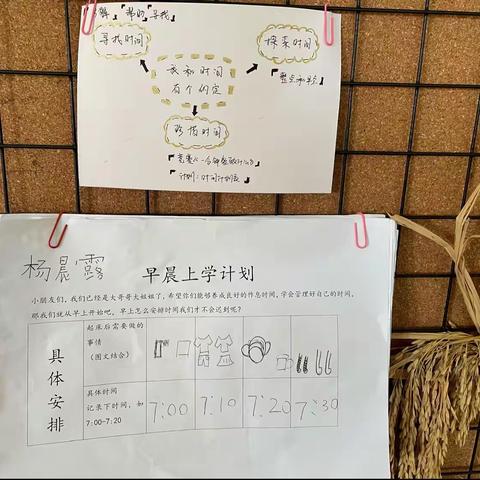 寻找时间
探索时间
『整点和半点』
我和时间
有个约定
珍惜时间
『计划：时间计划表』
杨晨露
早晨上学计划
小朋友们，我们已经是大哥哥大姐姐了，希望你们能够养成良好的作息时间，学会管理好自己的时间，
那我们就从早上开始吧，早上怎么安排时间我们才不会迟到呢？
具体安排
起床后需要做的
事情
（图文结合）
具体时间
记录下时间，如
7:00-7:20
7:00 7:10 7:20 7:30